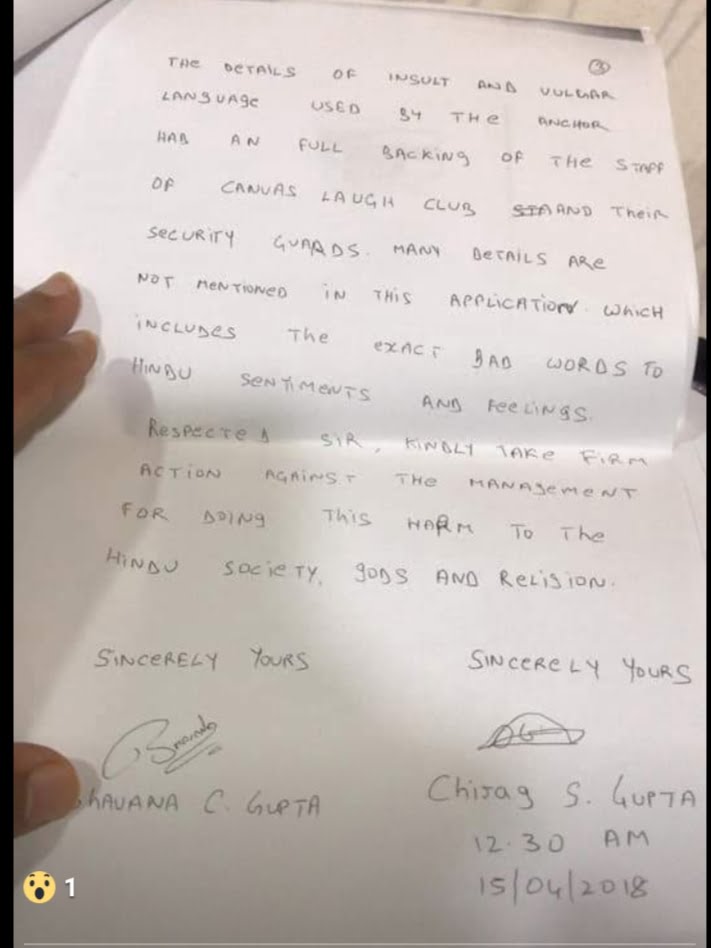 3
THE DETAILS OF INSULT AND VULGAR
LANGUAGE USED BY THE ANCHOR
HAB AN FULL BACKING OF THE STAFF
OF CANVAS LAUGH CLUB STAAND THEIR
SECURITY GUARDS. MANY DETAILS ARE
NOT MENTIONED IN THIS APPLICATION. WHICH
INCLUDES THE EXACT BAD WORDS TO
HINDU SENTIMENTS AND FEELINGS.
RESPECTED SIR, KINDLY TAKE FIRM
ACTION AGAINST THE MANAGEMENT
FOR DOING THIS HARM TO THE
HINDU SOCIETY, GODS AND RELISION.
SINCERELY YOURS SINCERELY YOURS
HAVANA C. GUPTA Chirag S. GUPTA
12.30 AM
15/04/2018
1